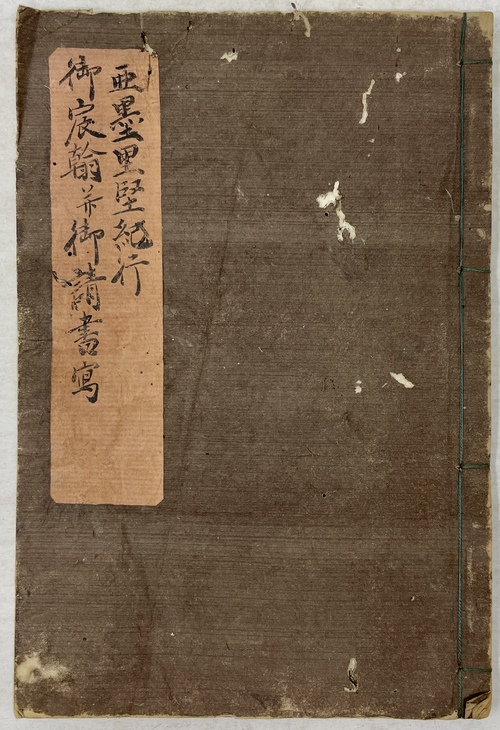 亜墨里堅紀行
御宸翰并御請書写